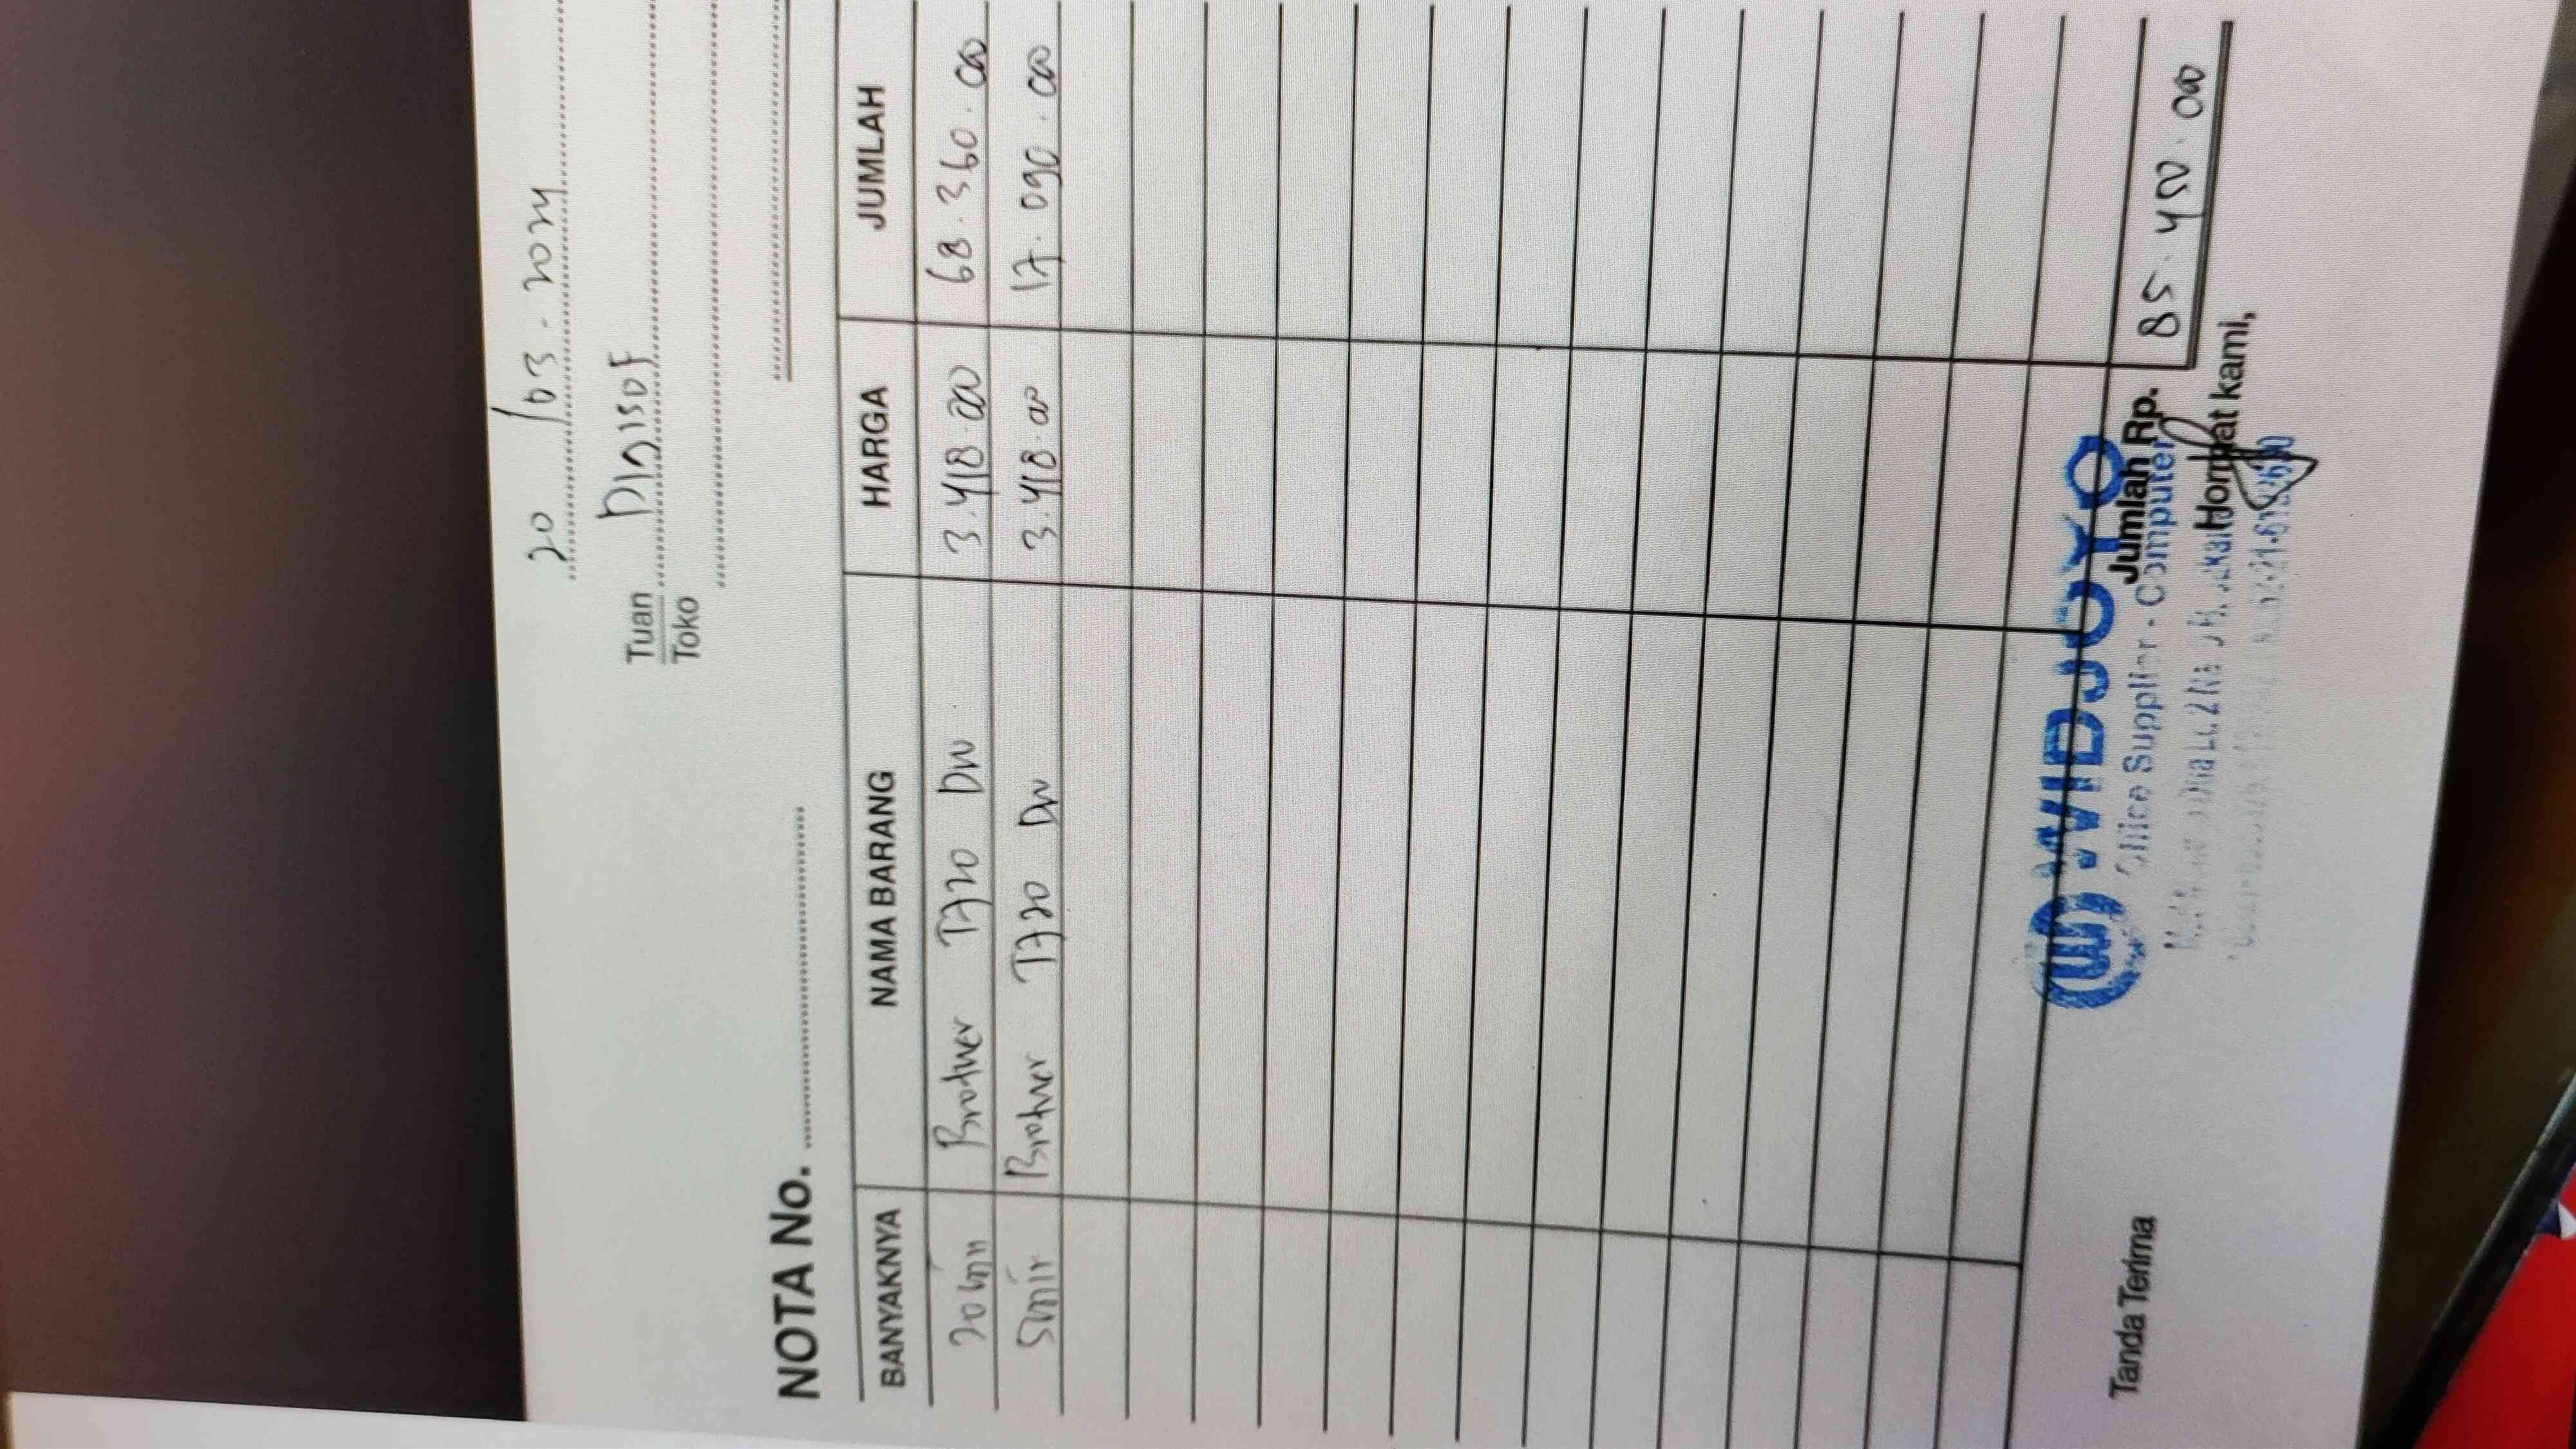 20 / 03 - 2024
Tuan
Toko
NOTA No.
BANYAKNYA NAMA BARANG HARGA JUMLAH
20 Unit Brother T720 DW 3.418.00 68.360.00
5 Unit Brother T720 DW 3.418.00 17.090.00
Jumlah Rp. 85.450.00
WIDJOYO
Office Supplier - Computer
Tanda Terima Hormat kami,